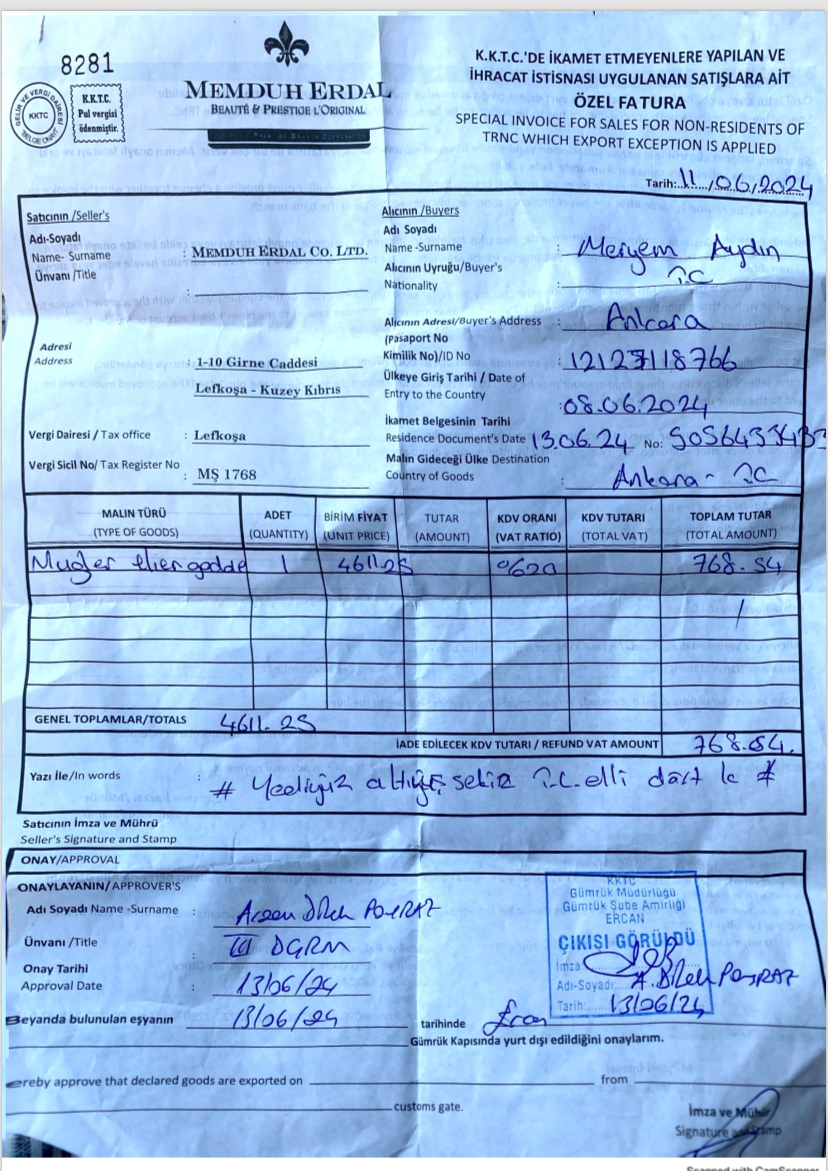 8281
GELİR VE VERGİ DAİRESİ
KKTC
K.K.T.C.
Pul vergisi
ödenmiştir.
MEMDUH ERDAL
BEAUTÉ & PRESTIGE L'ORIGINAL
K.K.T.C.'DE İKAMET ETMEYENLERE YAPILAN VE
İHRACAT İSTİSNASI UYGULANAN SATIŞLARA AİT
ÖZEL FATURA
SPECIAL INVOICE FOR SALES FOR NON-RESIDENTS OF
TRNC WHICH EXPORT EXCEPTION IS APPLIED
Tarih: 11/06/2024
Satıcının /Seller's
Adı-Soyadı
Name- Surname : MEMDUH ERDAL CO. LTD.
Ünvanı /Title :
Adresi
Address : 1-10 Girne Caddesi
Lefkoşa - Kuzey Kıbrıs
Vergi Dairesi / Tax office : Lefkoşa
Vergi Sicil No/ Tax Register No : MŞ 1768
Alıcının /Buyers
Adı Soyadı
Name -Surname : Meryem Aydın
Alıcının Uyruğu/Buyer's
Nationality : T.C
Alıcının Adresi/Buyer's Address : Ankara
(Pasaport No
Kimilik No)/ID No : 12127118766
Ülkeye Giriş Tarihi / Date of
Entry to the Country : 08.06.2024
İkamet Belgesinin Tarihi
Residence Document's Date 13.06.24 No:
Malın Gideceği Ülke Destination
Country of Goods : Ankara - T.C
MALIN TÜRÜ ADET BİRİM FİYAT TUTAR KDV ORANI KDV TUTARI TOPLAM TUTAR
(TYPE OF GOODS) (QUANTITY) (UNIT PRICE) (AMOUNT) (VAT RATIO) (TOTAL VAT) (TOTAL AMOUNT)
Mugler 1 4611.25 %20 768.54
GENEL TOPLAMLAR/TOTALS 4611.25
İADE EDİLECEK KDV TUTARI / REFUND VAT AMOUNT 768.54.
Yazı İle/In words : # Yediyüz altmış sekiz T.L. elli dört #
Satıcının İmza ve Mührü
Seller's Signature and Stamp
ONAY/APPROVAL
ONAYLAYANIN/APPROVER'S
Adı Soyadı Name -Surname : Dilek POYRAZ
Ünvanı /Title : III DGRM
Onay Tarihi
Approval Date 13/06/24
Beyanda bulunulan eşyanın 13/06/24 tarihinde Ercan
Gümrük Kapısında yurt dışı edildiğini onaylarım.
KKTC
Gümrük Müdürlüğü
Gümrük Şube Amirliği
ERCAN
ÇIKIŞI GÖRÜLDÜ
İmza:
Adı-Soyadı: A. Dilek POYRAZ
Tarih: 13/06/24
ereby approve that declared goods are exported on from
customs gate.
İmza ve Mühür
Signature and Stamp
Scanned with CamScanner